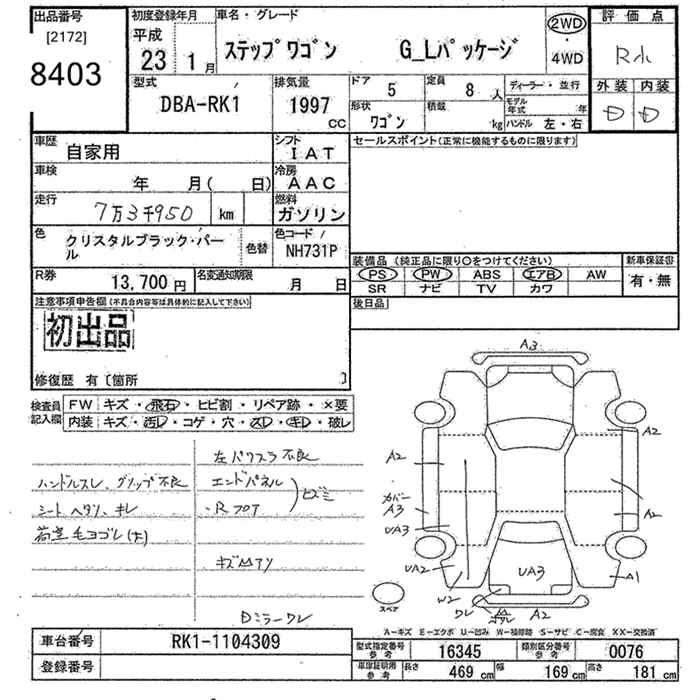 出品番号
[2172]
8403
初度登録年月
平成
23 1月
車名・グレード
ステップワゴン G_Lパッケージ
2WD
・
4WD
評価点
R小
外装 内装
D D
型式
DBA-RK1
排気量
1997
CC
ドア
5
定員
8人
形状
ワゴン
積載
kg
ディーラー・並行
モデル年式 年
ハンドル 左・右
車歴
自家用
シフト
IAT
車検
年 月( 日)
冷房
AAC
走行
7万3千950 km
燃料
ガソリン
色
クリスタルブラック・パール
色替
色コード /
NH731P
R券
13,700円
名変通知期限
月 日
セールスポイント(正常に機能するものに限ります)
装備品(純正品に限り○をつけてください)
PS PW ABS エアB AW
SR ナビ TV カワ
新車保証書
有・無
後日品
注意事項申告欄(不具合内容等は具体的に記入して下さい)
初出品
修復歴 有〔箇所 〕
検査員
記入欄
FW キズ・飛石・ヒビ割・リペア跡・×要
内装 キズ・汚レ・コゲ・穴・スレ・キレ・破レ
左パワスラ不良
ハンドルスレ、グリップ不良
エンドパネル
シート ヘタリ、キレ
・Rフロア
ヒズミ
荷室毛ヨゴレ(大)
キズ凹アリ
Dミラーワレ
A3
A2
A2
カバー
A3
A2
UA3
UA2
UA3
A1
W2
ワレ
A2
スペア
A-キズ E-エクボ U-凹み W-補修跡 S-サビ C-腐食 XX-交換済
車台番号
RK1-1104309
登録番号
型式指定番号
参考
16345
類別区分番号
参考
0076
車庫証明用
参考
長さ
469 cm
幅
169 cm
高さ
181 cm